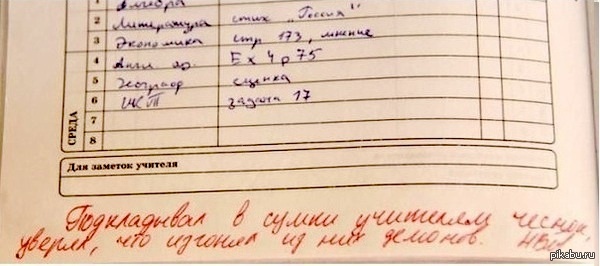 1 Алгебра
2 Литература стих „Россия"
3 Экономика стр 173, мнение
4 Англ. яз. Ex 4 p 75
5 Географ сценка
6 ИКТ задача 17
7
8
СРЕДА
Для заметок учителя
Подкладывал в сумки учителям чеснок,
уверял, что изгонял из них демонов.
pikabu.ru